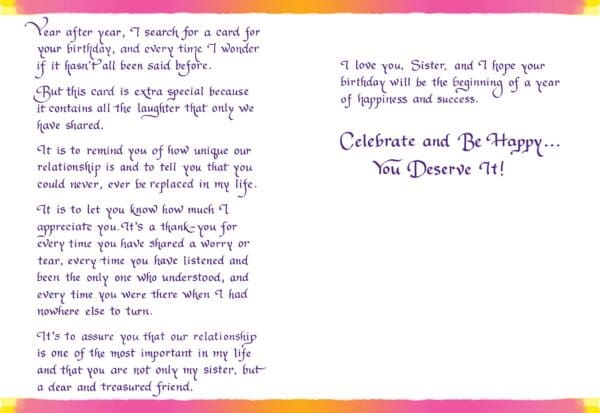 Year after year, I search for a card for
your birthday, and every time I wonder
if it hasn't all been said before.
But this card is extra special because
it contains all the laughter that only we
have shared.
It is to remind you of how unique our
relationship is and to tell you that you
could never, ever be replaced in my life.
It is to let you know how much I
appreciate you. It's a thank-you for
every time you have shared a worry or
tear, every time you have listened and
been the only one who understood, and
every time you were there when I had
nowhere else to turn.
It's to assure you that our relationship
is one of the most important in my life
and that you are not only my sister, but
a dear and treasured friend.
I love you, Sister, and I hope your
birthday will be the beginning of a year
of happiness and success.
Celebrate and Be Happy...
You Deserve It!